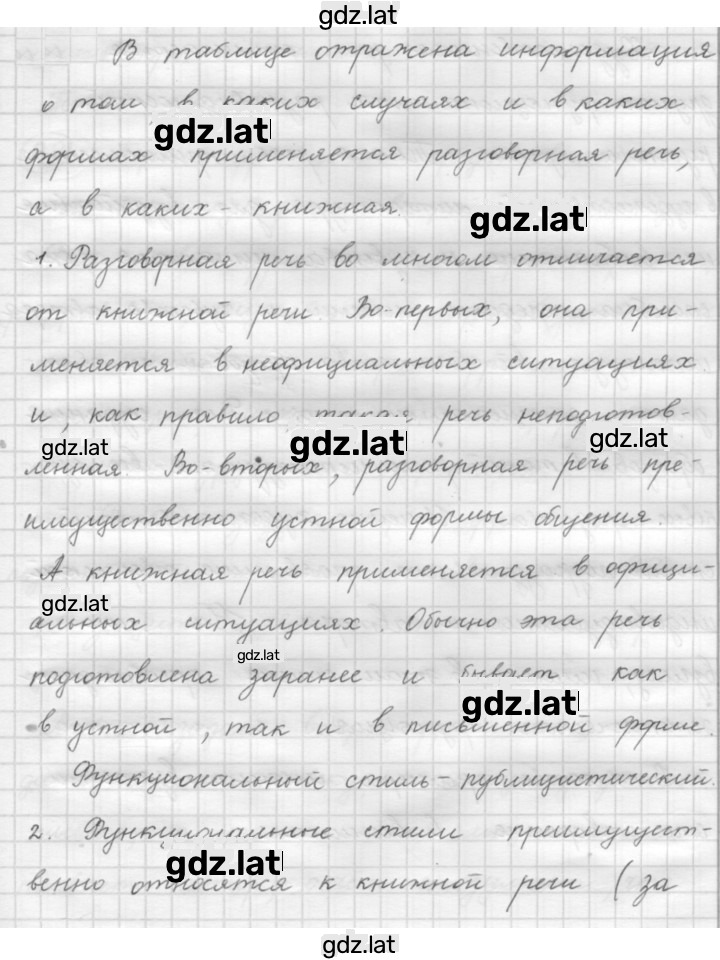 gdz.lat
В таблице отражена информация
о том в каких случаях и в каких
gdz.lat
формах применяется разговорная речь,
а в каких - книжная.
gdz.lat
1. Разговорная речь во многом отличается
от книжной речи. Во-первых, она при-
меняется в неофициальных ситуациях
и, как правило такая речь неподготов-
gdz.lat gdz.lat gdz.lat
ленная. Во-вторых, разговорная речь пре-
имущественно устной формы общения.
А книжная речь применяется в офици-
gdz.lat
альных ситуациях. Обычно эта речь
gdz.lat
подготовлена заранее и бывает как
gdz.lat
в устной, так и в письменной форме.
Функциональный стиль - публицистический.
2. Функциональные стили преимущест-
gdz.lat
венно относятся к книжной речи (за
gdz.lat